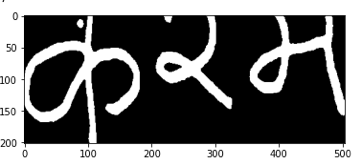 0
50
करम
100
150
200
0 100 200 300 400 500